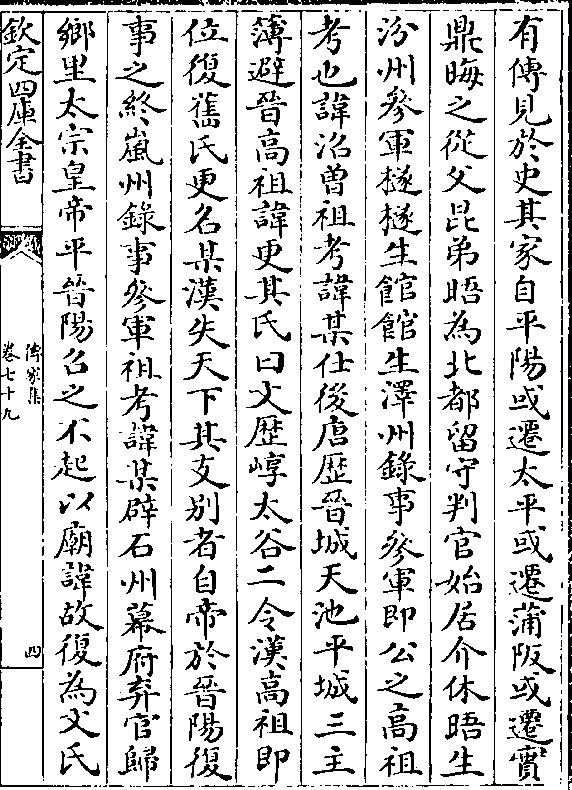 有傳見於史其家自平陽或遷太平或遷蒲阪或遷實
鼎晦之從父昆弟晤為北都留守判官始居介休晤生
汾州參軍檖檖生館館生澤州錄事參軍即公之高祖
考也諱沼曽祖考諱某仕後唐歴晉城天池平城三主
薄避晉高祖諱更其氏曰文歴崞太谷二令漢高祖即
位復舊氏更名某漢失天下其支别者自帝於晉陽復
事之終嵐州錄事參軍祖考諱某辟石州幕府弃官歸
鄉里太宗皇帝平晉陽召之不起以廟諱故復為文氏
欽定四庫全書
傳家集
卷七十九
四